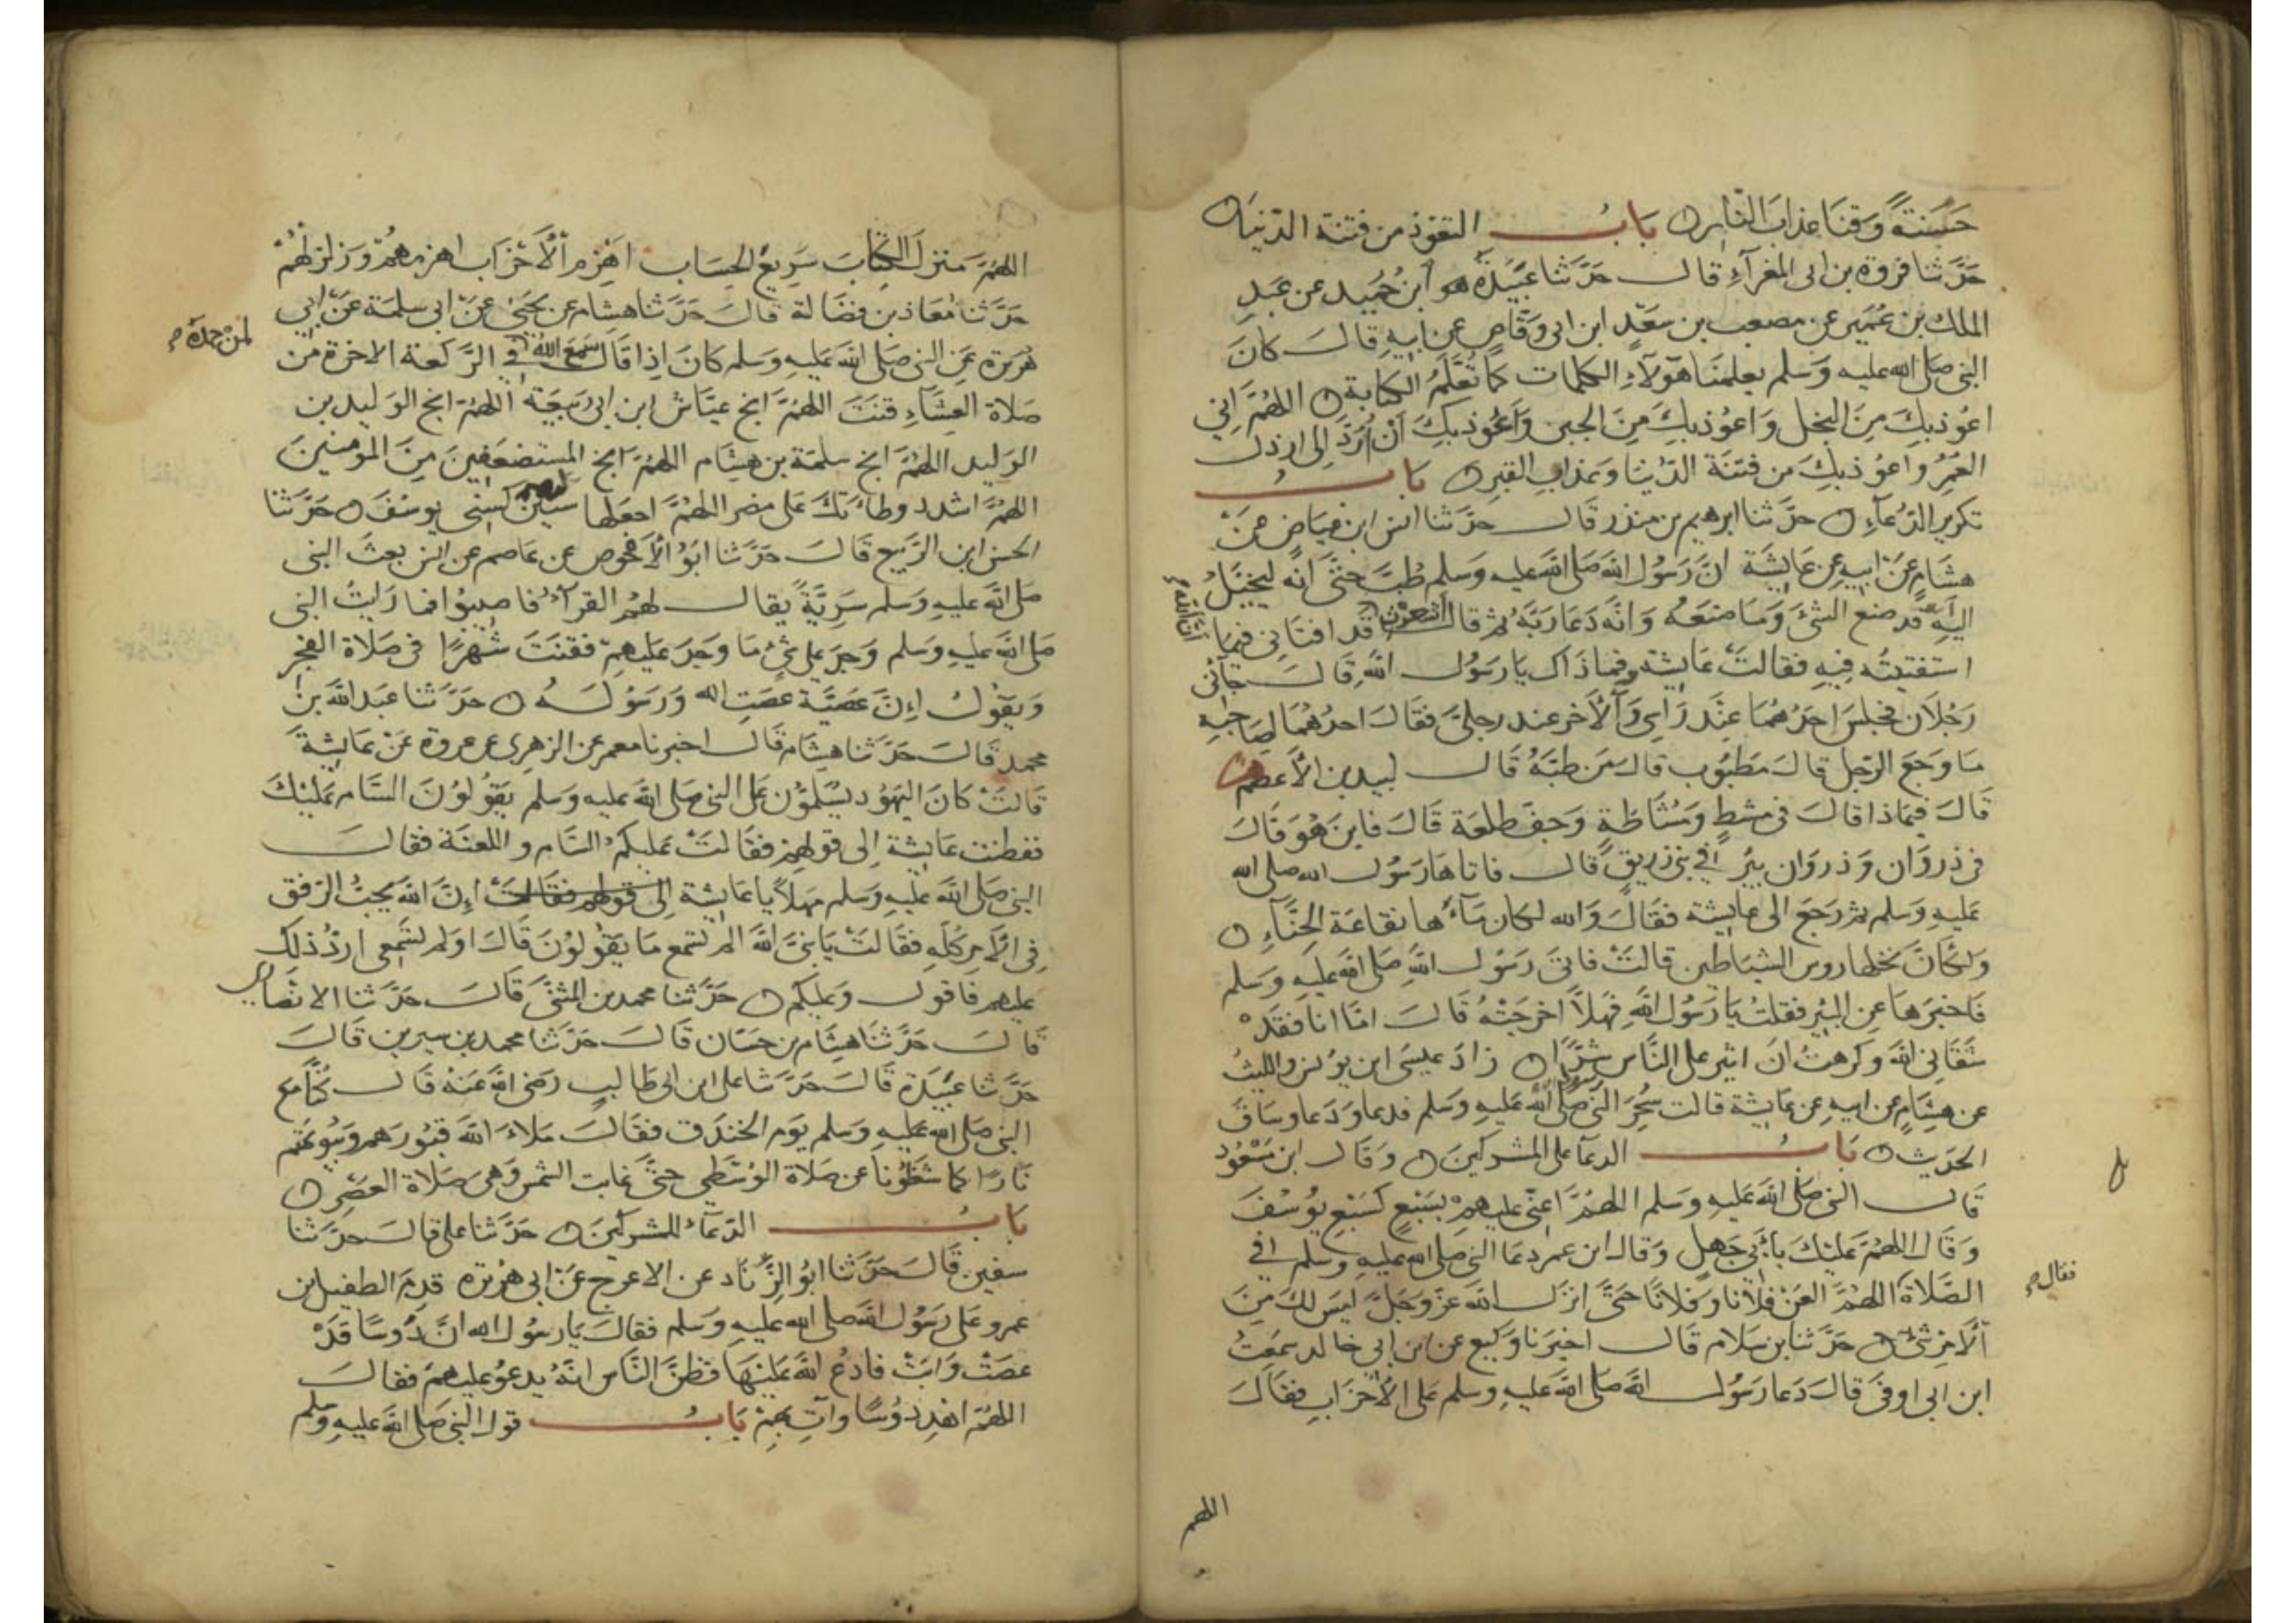 حَسَنَةً وَقِنَا عَذَابَ النَّارِ بَابُ التعَوّذ من فتنة الدّنيا
حَدَّثنا فروة بن ابى المَغرآءِ قال حَدَّثنا عَبَيْدَةُ هو ابن حُمَيد عن عَبد
الملك بن عُمَير عن مصعب بن سعَدٍ ابن ابى وَقّاص عن ابيهِ قالَ كانَ
النبى صَلى الله عليه وَسَلم يعلمنَا هَؤلآءِ الكلمات كمَا تُعَلَّمُ الكتابة اللهُمَّ اِنِي
اعوُذ بِكَ مِنَ البخل وَاعوُذ بِكَ مِنَ الجبن وَاَعُوذ بِكَ اَنْ اُرَدَّ اِلى ارذل
العُمُرِ واعوُذ بِكَ من فتنَة الدّنيَا وَعَذابِ القبرِ بَابُ
تكرير الدّعآءِ حدَّثنا ابرهيم بن منذر قال حدَّثنا انس ابن عياض عَنْ
هشامٍ عَنْ ابيهِ عِن عَايشَة انَّ رَسُول الله صَلى الله عليه وَسَلم طُبَّ حتَّى انّه ليخيَّلُ
اليهِ اَنّه قد صنع الشئَ وَمَا صَنعَهُ وَانّه دَعَا رَبّهُ ثم قال اشعرْتِ قد افتَانِى فيمَا
انّ الله م
استفتيتُه فِيهِ فقالتْ عَايشة وفمَا ذَاك يَا رَسُول اللهِ قَالَ جَآئَنى
رَجُلَانِ فجَلسَ احَدُهمَا عِنْد رَاسِى وَالآخر عند رِجلىَّ فقَالَ احدُهُمَا لِصَاحِبِهِ
مَا وَجَع الرّجل قالَ مَطبُوب قالَ مَن طبَّهُ قَال لبيد بن الأَعصَم
قَالَ فيمَاذا قالَ فى مشطٍ وَمُشَاطَةٍ وَجفِّ طلعَة قَالَ فاين هُوَ قَالَ
فى ذروَان وَذروَان بِيرٌ فى بَنى زريقٍ قَال فاتاهَا رَسُول الله صلى الله
عَليهِ وَسَلم ثم رَجَعَ الى عايشة فقَالَ وَالله لكان مَآءَها نقاعَة الحِنَّآءِ
وَلكَانَ نخلها روس الشيَاطين قالتْ فاتَى رَسُول اللهِ صَلى اللهُ عَليهِ وَسَلم
فَاخبَرهَا عنِ البئِر فقلتُ يَا رَسُول اللهِ فهَلاّ اخرَجتهُ قَالَ امّا انا فقَدْ
شَفَانِى اللهُ وكرهتُ انْ اثير على النَّاس شرًّا زادَ عيسَى ابن يونس والليثُ
عن هِشامٍ عن ابيهِ عِن عَايشة قالت سُحِرَ النبى صَلى الله عَليهِ وَسَلم فدعَا وَدَعَا وسَاقَ
الحَدِيث بَابُ الدعآء على المشركينَ وَقَال ابن مَسْعُود
قَال النبى صَلى الله عَليهِ وَسَلم اللهُمَّ اعِنّى عَليهم بسَبْعٍ كَسَبْع يوُسُفَ
وَقَالَ اللهُمَّ عَلَيْكَ بِأَبِى جَهلٍ وَقالَ ابن عمر دعَا النبى صَلى الله عَليهِ وَسَلم فى
الصَّلاة اللهُمَّ العَنْ فلاَنا وَفلاَنًا حَتّى انزَل الله عَزّ وَجَلّ لَيسَ لكَ مِنَ
فقال م
الاَمْرِ شَىْءٌ حَدَّثنا بن سَلام قَال اخبَرنا وَكيع عن ابن ابى خالد سَمعتُ
ابن ابى اوفى قالَ دَعا رَسُول الله صَلى الله عَليهِ وسَلم عَلى الأحْزَابِ فقَالَ
اللهم
اللهُمَّ منزلَ الكِتَابَ سَرِيعَ الحِسَاب اهْزِم اَلْاَحْزَاب اهزمهُمْ وَزلزلهُمْ
حَدَّثنا مُعَاذ بن فضَالة قالَ حَدَّثنا هِشام عن يحَيَى عَنْ ابى سلمَة عَنْ ابى
هُرَيرة عَنِ النبى صَلى الله عَليهِ وَسَلم كَانَ اِذا قَالَ سَمعَ اللهُ فى الرَّكعَة الاخرة من
لمَنْ حمدَهُ م
صَلاة العِشَآءِ قنَتَ اللهُمَّ انجِ عيَّاش ابن ابى رَبيعَة اللهُمَّ انجِ الوَليد بن
الوَليد اللهُمَّ انجِ سَلمَة بن هِشَام اللهُمَّ انجِ المستضعَفِينَ مِنَ المؤمنينَ
اللهُمَّ اشدد وطاءَتكَ عَلى مضر اللهُمَّ اجعَلها سنينَ كسِنى يوسُفَ حَدَّثنا
الحسَن ابن الرَّبيع قَالَ حَدَّثنا ابَوُ الاَحْوَص عن عَاصم عن انس بعثَ النبى
صَلى الله عَليهِ وَسَلم سَرِيَّةً يقال لهُم القرآءُ فاصيبُوا فما رَايتُ النبى
صَلى الله عَليهِ وَسَلم وَجدَ على شىْءٍ مَا وَجدَ عَليهِمْ فقنَتَ شَهْرًا فى صَلاة الفجرِ
وَيقوُل اِنَّ عُصَيَّة عَصَتِ الله وَرَسُولَهُ حَدَّثنا عبَد الله بن
محمد قالَ حَدَّثنا هشَام قَال اخبرنا معمر عن الزهرى عن عروة عَنْ عَايشةَ
قَالتْ كانَ اليَهُود يسَلمُوْن عَلى النبى صَلى الله عَليه وَسَلم يقوُلوُنَ السَّام عَليْكَ
ففطنت عَايشة اِلى قولهم فقَالتْ عَليكمُ السَّام واللعنَة فقالَ
النبى صَلى الله عَليهِ وَسَلم مَهلاً يا عَايشة الى قولهم فقالت اِنَّ الله يحبُّ الرّفق
فِى الاَمرِ كلّهِ فقَالتْ يَا نبىَّ الله الم تسْمع مَا يَقوُلوُنَ قَالَ اوَلم تسْمَعِى اردُّ ذلك
عَليهم فاقول وَعَليكمْ حَدَّثنا محمد بن المثنىَّ قَالَ حَدَّثنا الانصَارى
قَالَ حَدَّثنا هِشَام بن حَسَّان قَالَ حَدَّثنا محمد بن سيرين قَالَ
حَدَّثنا عَبيدَة قَالَ حَدَّثنا على ابن ابى طَالبٍ رَضى الله عَنهُ قَال كُنَّا مَع
النبى صَلى الله عَليهِ وَسَلم يَوم الخندَق فقَالَ مَلاءَ اللهُ قبُورَهم وَبيُوتهم
نَارًا كمَا شغَلوُنا عن صَلاة الوُسْطَى حتَّى غابت الشمس وَهى صَلاة العَصرِ
بَابُ الدّعَآء للمشركينَ حَدَّثنا على قالَ حَدَّثنا
سفين قَالَ حَدَّثنا ابوُ الزِّنَاد عن الاعرج عَنْ ابى هُرَيرة قدِمَ الطفيل بن
عمرو عَلى رَسُول الله صَلى الله عَليهِ وَسَلم فقالَ يَا رسُول الله انَّ دَوسًا قدْ
عصَتْ وَابَتْ فادعُ الله عَلَيْهَا فظنَّ النَّاس انَّهُ يدعوُ عَليهمْ فقالَ
اللهُمَّ اهْدِ دَوْسًا وآتِ بِهِمْ بَابُ قول النبى صَلى الله عَليهِ وَسَلم